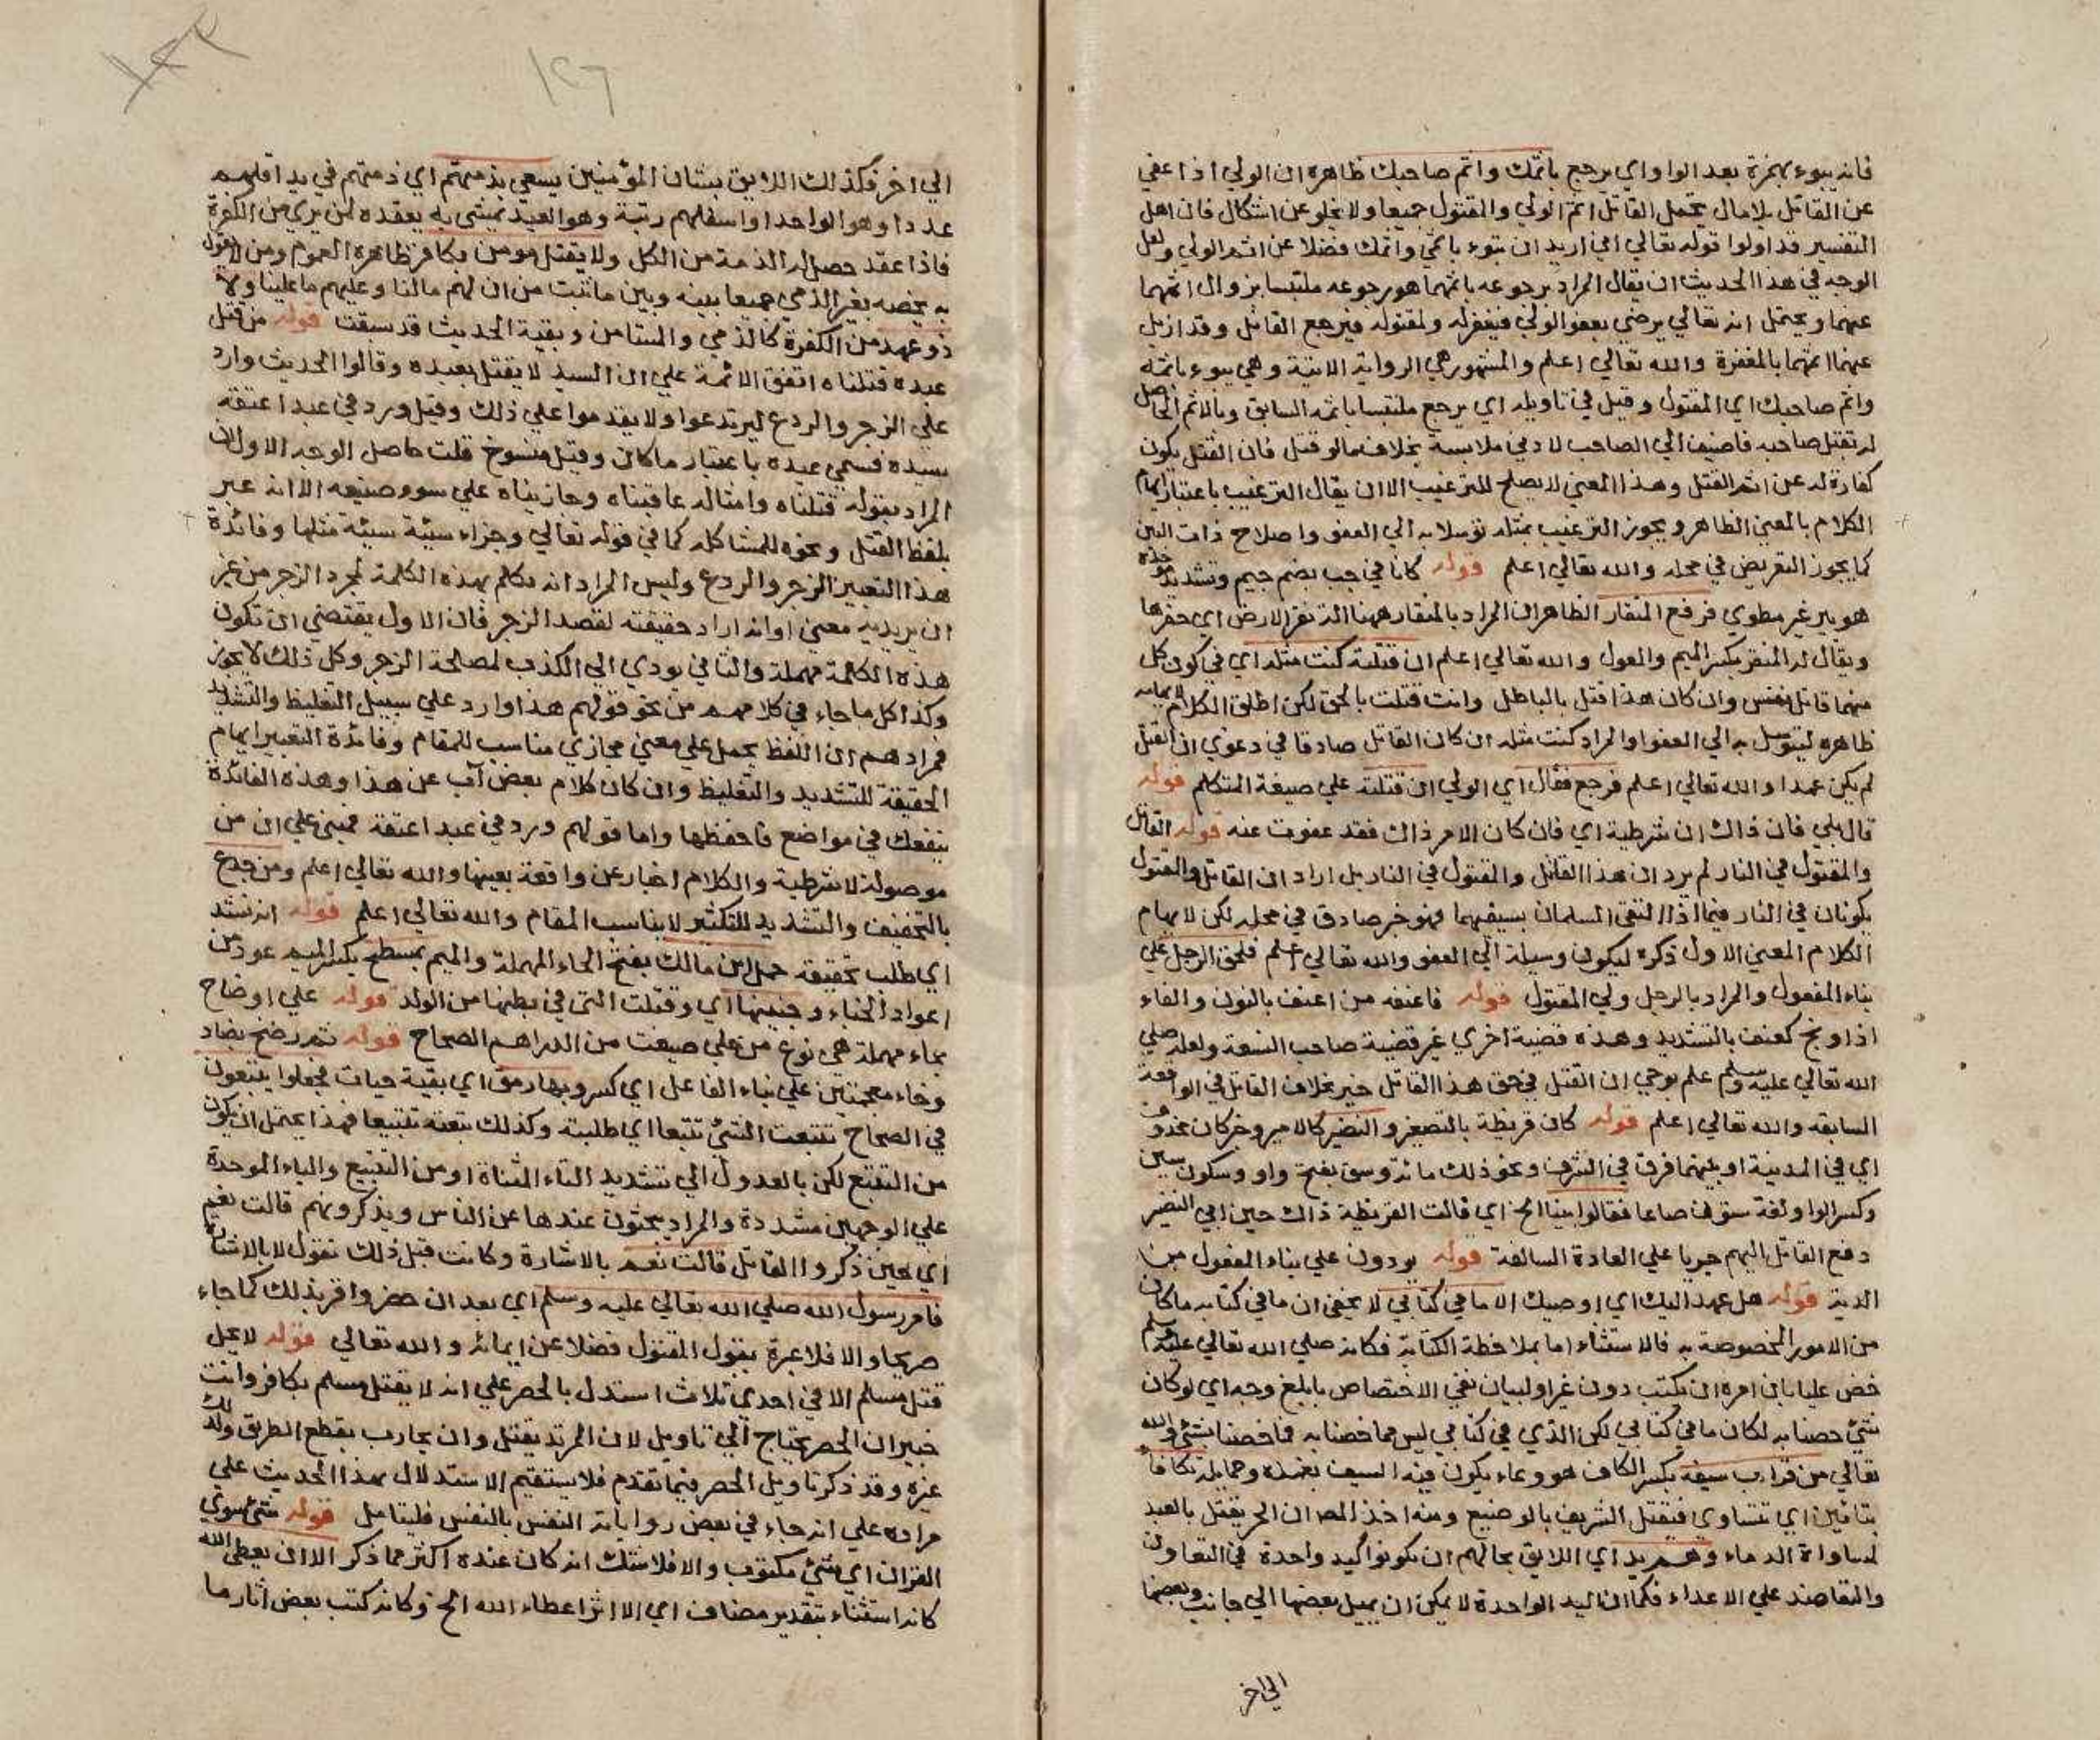 فانه يبوء بهمزة بعد الواو اي يرجع باثمك واثم صاحبك ظاهره ان الولي اذا عفي
عن القاتل بلا مال يتحمل القاتل اثم الولي والمقتول جميعا ولا يخلو عن اشكال فان اهل
التفسير قد اولوا قوله تعالي اني اريد ان تبوء باثمي واثمك فضلا عن اثم الولي ولعل
الوجه في هذا الحديث ان يقال المراد برجوعه باثمهما هو رجوعه ملتبسا بزوال اثمهما
عنهما ويحتمل انه تعالي يرضي بعفو الولي فيغفر له ولمقتوله فيرجع القاتل وقد ازيل
عنهما اثمهما بالمغفرة والله تعالي اعلم والمشهور هي الرواية الاتية وهي يبوء باثمه
واثم صاحبك اي المقتول وقيل في تاويله اي يرجع ملتبسا باثمه السابق وبالاثم الحاصل
له بقتل صاحبه فاضيف الي الصاحب لادني ملابسة بخلاف ما لو قتل فان القتل يكون
كفارة له عن اثم القتل وهذا المعني لا يصلح للترغيب الا ان يقال الترغيب باعتبار ايهام
الكلام بالمعني الظاهر ويجوز الترغيب بمثله توسلا به الي العفو واصلاح ذات البين
كما يجوز التعريض في محله والله تعالي اعلم قوله كانا في جب بضم جيم وتشديد موحدة
هو بير غير مطوي فرفع المنقار الظاهر ان المراد بالمنقار ههنا الة نقر الارض اي حفرها
ويقال له المنقر بكسر الميم والمعول والله تعالي اعلم ان قتلته كنت مثله اي في كون كل
منهما قاتل نفس وان كان هذا قتل بالباطل وانت قتلت بالحق لكن اطلق الكلام لايهامه
ظاهره ليتوسل به الي العفو او المراد كنت مثله ان كان القاتل صادقا في دعوي ان القتل
لم يكن عمدا والله تعالي اعلم فرجع فقال اي الولي ان قتلته علي صيغة المتكلم قوله
قال بلي فان ذاك ان شرطية اي فان كان الامر ذاك فقد عفوت عنه قوله القاتل
والمقتول في النار لم يرد ان هذا القاتل والمقتول في النار بل اراد ان القاتل والمقتول
يكونان في النار فيما اذا التقي المسلمان بسيفيهما فهو خبر صادق في محله لكن لايهام
الكلام المعني الاول ذكره ليكون وسيلة الي العفو والله تعالي اعلم فلحق الرجل علي
بناء المفعول والمراد بالرجل ولي المقتول قوله فاعنفه من اعنف بالنون والفاء
اذا وبخ كعنف بالتشديد وهذه قضية اخري غير قضية صاحب النسعة ولعله صلي
الله تعالي عليه وسلم علم بوحي ان القتل في حق هذا القاتل خير بخلاف القاتل في الواقعة
السابقه والله تعالي اعلم قوله كان قريظة بالتصغير والنضير كالامير وخبر كان محذوف
اي في المدينة او بينهما فرق في الشرف ونحو ذلك مائة وسق بفتح واو وسكون سين
وكسر الواو لغة ستون صاعا فقالوا بيننا الخ اي قالت القريظة ذاك حين ابي النضير
دفع القاتل اليهم جريا علي العادة السالفة قوله يودون علي بناء المفعول من
الدية قوله هل عهد اليك اي اوصيك الا ما في كتابي لا يخفي ان ما في كتابه ما كان
من الامور المخصوصة به فالاستثناء اما بملاحظة الكتابة فكانه صلي الله تعالي عليه وسلم
خص عليا بان امره ان يكتب دون غيره او لبيان نفي الاختصاص بابلغ وجه اي لو كان
شئ خصنا به لكان ما في كتابي لكن الذي في كتابي ليس مما خصنا به فما خصنا بشئ والله
تعالي من قراب سيفه بكسر الكاف هو وعاء يكون فيه السيف بغمده وحمايله تكافا
بتائين اي تتساوي فيقتل الشريف بالوضيع ومنه اخذ المص ان الحر يقتل بالعبد
لمساواة الدماء وهم يد اي اللايق بحالهم ان يكونوا كيد واحدة في التعاون
والتعاضد علي الاعداء فكما ان اليد الواحدة لا يمكن ان يميل بعضها الي جانب وبعضها
الي اخر
١٤٦
الي اخر فكذلك اللايق بشان المؤمنين يسعي بذمتهم اي ذمتهم في يد اقلهم
عددا وهو الواحد او اسفلهم رتبة وهو العبد يمشي به يعقده لمن يري من الكفرة
فاذا عقد حصل له الذمة من الكل ولا يقتل مومن بكافر ظاهره العموم ومن لا يقول
به يخصه بغير الذمي جميعا بينه وبين ما ثبت من ان لهم ما لنا وعليهم ما علينا ولا
ذو عهد من الكفرة كالذمي والمستامن وبقية الحديث قد سبقت قوله من قتل
عبده قتلناه اتفق الائمة علي ان السيد لا يقتل بعبده وقالوا الحديث وارد
علي الزجر والردع ليرتدعوا ولا يقدموا علي ذلك وقيل ورد في عبد اعتقه
سيده فسمي عبده باعتبار ما كان وقيل منسوخ قلت حاصل الوجه الاول ان
المراد بقوله قتلناه وامثاله عاقبناه وجازيناه علي سوء صنيعه الا انه عبر
بلفظ القتل ونحوه للمشاكله كما في قوله تعالي وجزاء سيئة سيئة مثلها وفائدة
هذا التعبير الزجر والردع وليس المراد انه تكلم بهذه الكلمة لمجرد الزجر من غير
ان يريد به معني او انه اراد حقيقته لقصد الزجر فان الاول يقتضي ان تكون
هذه الكلمة مهملة والثاني يودي الي الكذب لمصلحة الزجر وكل ذلك لا يجوز
وكذا كل ما جاء في كلامهم من نحو قولهم هذا وارد علي سبيل التغليظ والتشديد
فمرادهم ان اللفظ يحمل علي معني مجازي مناسب للمقام وفائدة التعبير ايهام
الحقيقة للتشديد والتغليظ وان كان كلام بعض آب عن هذا وهذه الفائدة
تنفعك في مواضع فاحفظها واما قولهم ورد في عبد اعتقه فمبني علي ان من
موصولة لا شرطية والكلام اخبار عن واقعة بعينها والله تعالي اعلم ومن جدع
بالتخفيف والتشديد للتكثير لا يناسب المقام والله تعالي اعلم قوله انه نشد
اي طلب تحقيقه حمل ابن مالك بفتح الحاء المهملة والميم بمسطح بكسر الميم عود من
اعواد الخباء وجنينها اي وقتلت التي في بطنها من الولد قوله علي اوضاح
بحاء مهملة هي نوع من حلي صيغت من الدراهم الصحاح قوله ثم رضخ بضاد
وخاء معجمتين علي بناء الفاعل اي كسر وبها رمق اي بقية حيات فجعلوا يتبعون
في الصحاح تتبعت الشئ تتبعا اي طلبته وكذلك تبعته تتبيعا فهذا يحتمل ان يكون
من التتبع لكن بالعدول الي تشديد التاء المثناة او من التتبيع والباء الموحدة
علي الوجهين مشددة والمراد يبحثون عندها عن الناس ويذكرونهم قالت نعم
اي حين ذكروا القاتل قالت نعم بالاشارة وكانت قبل ذلك تقول لا بالاشارة
فامر رسول الله صلي الله تعالي عليه وسلم اي بعد ان حضر واقر بذلك كما جاء
صريحا والا فلا عبرة بقول المقتول فضلا عن ايمائه والله تعالي قوله لا يحل
قتل مسلم الا في احدي ثلاث استدل بالحصر علي انه لا يقتل مسلم بكافر وانت
خبير ان الحصر يحتاج الي تاويل لان المرتد يقتل وان يحارب بقطع الطريق
غيره وقد ذكر تاويل الحصر فيما تقدم فلا يستقيم الاستدلال بهذا الحديث علي
مراده علي انه جاء في بعض رواياته النفس بالنفس فليتامل قوله شئ سوي
القران اي شئ مكتوب والا فلا شك انه كان عنده اكثر مما ذكر الا ان يعطي الله
كانه استثناء بتقدير مضاف اي الا اثر اعطاء الله الخ وكانه كتب بعض اثار ما